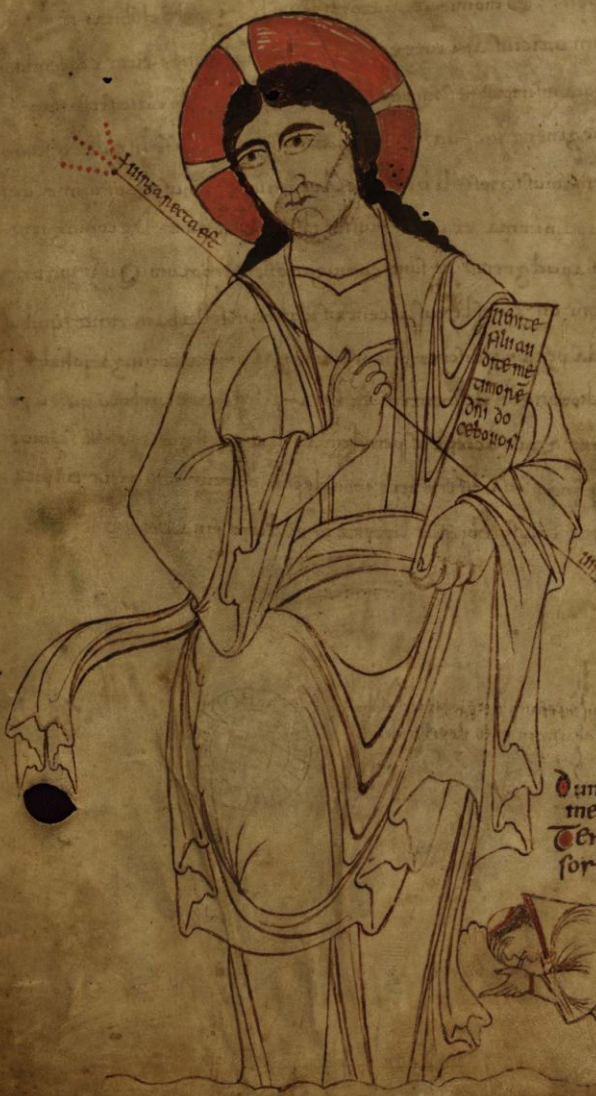 + uirga recta est
Uenite
filii au
dite me
timorē
dn̄i do
cebo uos
Dun
me
Te
sor